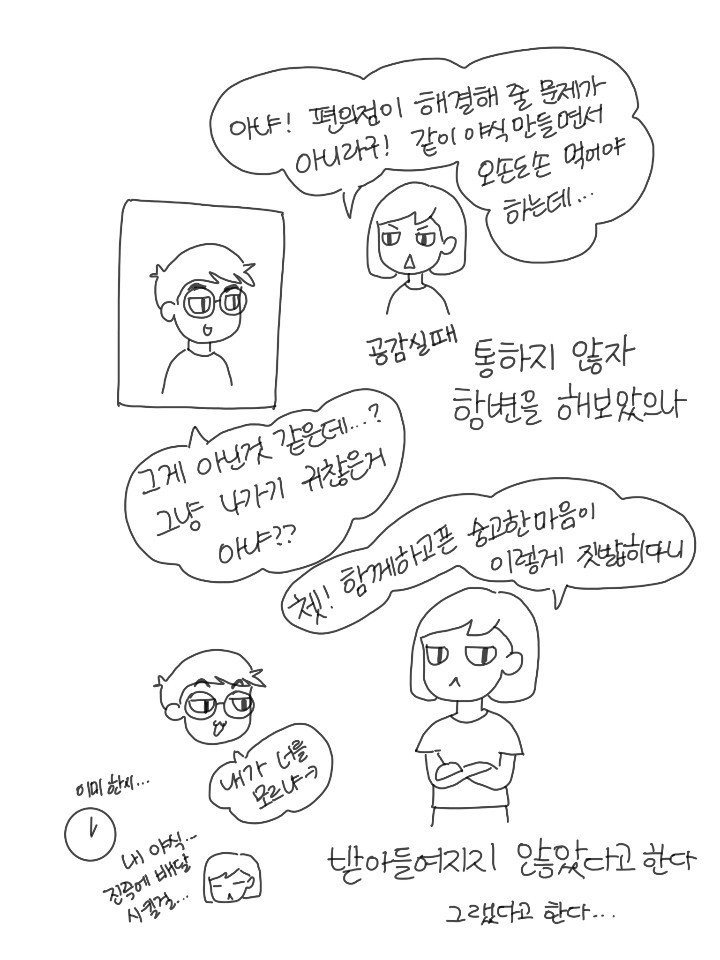 아냐! 편의점이 해결해 줄 문제가
아니라구! 같이 야식 만들면서
오손도손 먹어야
하는데...
공감실때
통하지 않자
항변을 해보았으나
그게 아닌것 같은데...?
그냥 나가기 귀찮은거
아냐??
쳇! 함께하고픈 숭고한 마음이
이렇게 짓밟히다니
내가 너를
모르냐ㅋ
이미 한시...
내 야식...
진즉에 배달
시킬걸...
받아들여지지 않았다고 한다
그랬다고 한다...